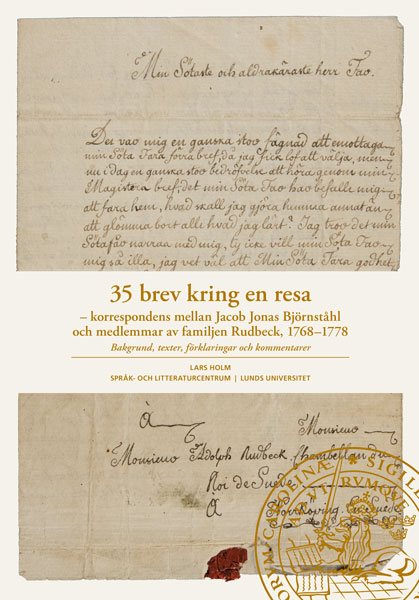 Min Sötaste och aldrakäraste herr Far.
Det var mig en ganska stor fägnad att emottaga
min Söta Fars förra bref, då jag fick lof att välja, men
nu i dag en ganska stor bedröfvelse att höra genom min
Magisters bref, det min Söta Far har befalt mig
att fara hem, hvad skall jag gjöra hemma annat än
att glömma bort alt hvad jag lärt? Jag tror det min
Söta far narras med mig, ty icke vill min Söta Far
mig så illa, jag vet väl att Min Söta Fars godhet
35 brev kring en resa
– korrespondens mellan Jacob Jonas Björnståhl
och medlemmar av familjen Rudbeck, 1768–1778
Bakgrund, texter, förklaringar och kommentarer
LARS HOLM
SPRÅK- OCH LITTERATURCENTRUM | LUNDS UNIVERSITET
À
Monsieur
Monsieur Adolph Rudbeck, Chambellan du
Roi de Suede
À
Norrköping en Suede